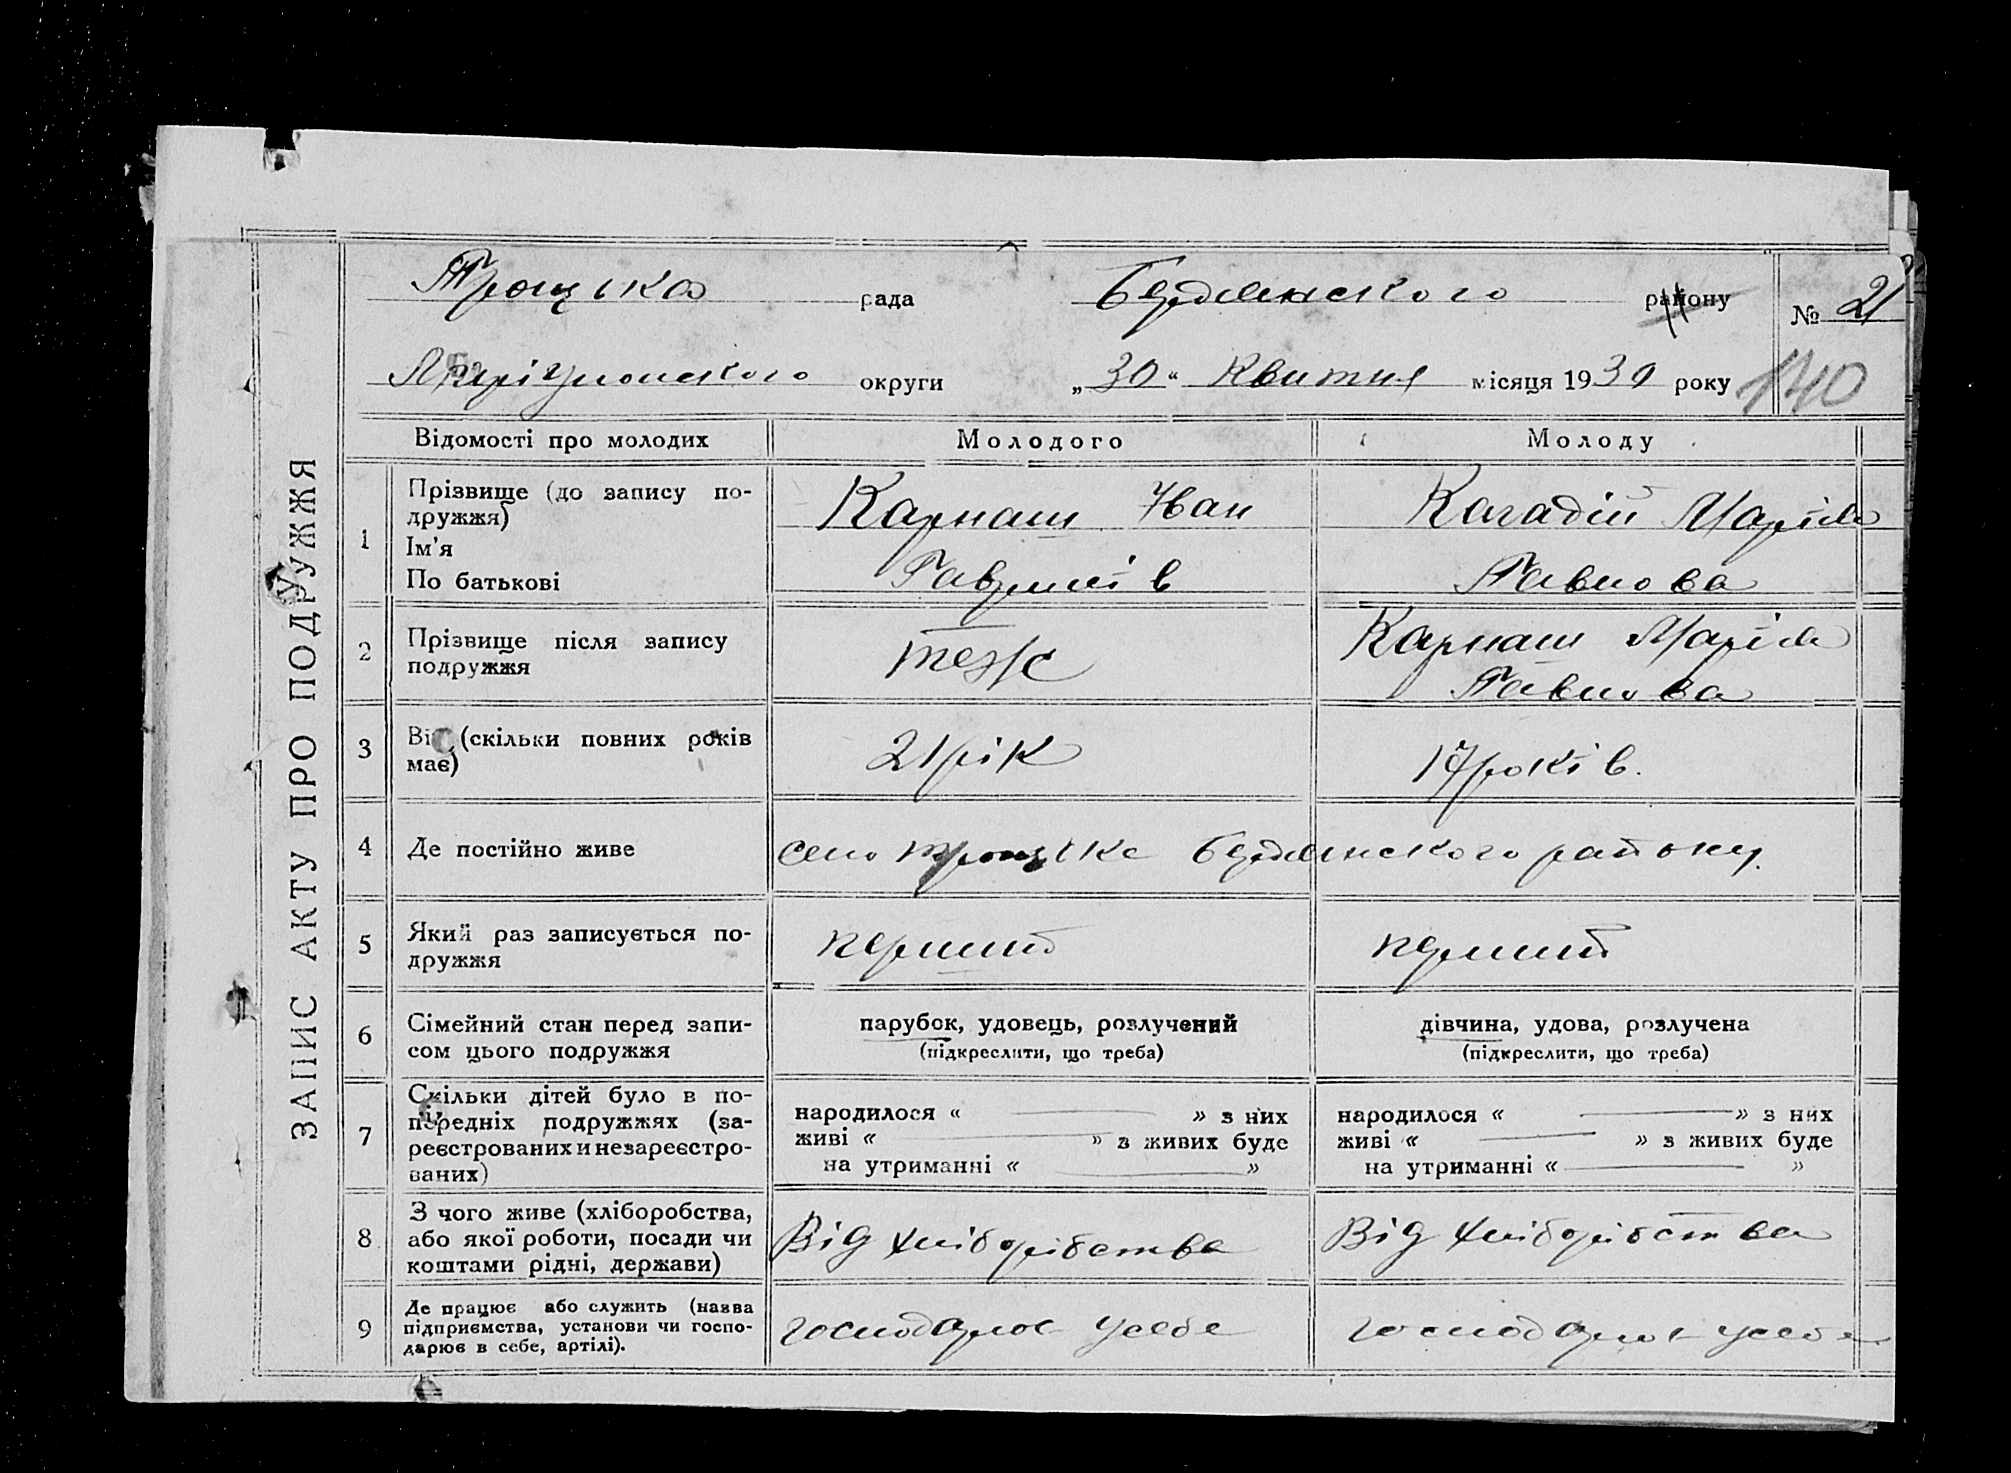 ЗАПИС АКТУ ПРО ПОДРУЖЖЯ
Троцька рада Бердянского району № 21
Маріупольского округи „30“ Квітня місяця 1930 року 140
Відомості про молодих Молодого Молоду
1 Прізвище (до запису подружжя) Карнаш Іван Кагадій Марія
Ім'я
По батькові Гаврилів Павлова
2 Прізвище після запису подружжя теж Карнаш Марія
Павлова
3 Вік (скільки повних років має) 21 рік 17 років.
4 Де постійно живе село Троцьке Бердянского району.
5 Який раз записується подружжя перший перший
6 Сімейний стан перед записом цього подружжя парубок, удовець, розлучений дівчина, удова, розлучена
(підкреслити, що треба) (підкреслити, що треба)
7 Скільки дітей було в попередніх подружжях (зареєстрованих и незареєстрованих)
народилося « » з них народилося « » з них
живі « » з живих буде живі « » з живих буде
на утриманні « » на утриманні « »
8 З чого живе (хліборобства, або якої роботи, посади чи коштами рідні, держави) Від хліборібства Від хліборібства
9 Де працює або служить (назва підприємства, установи чи господарює в себе, артілі). господарює усебе господарює усебе